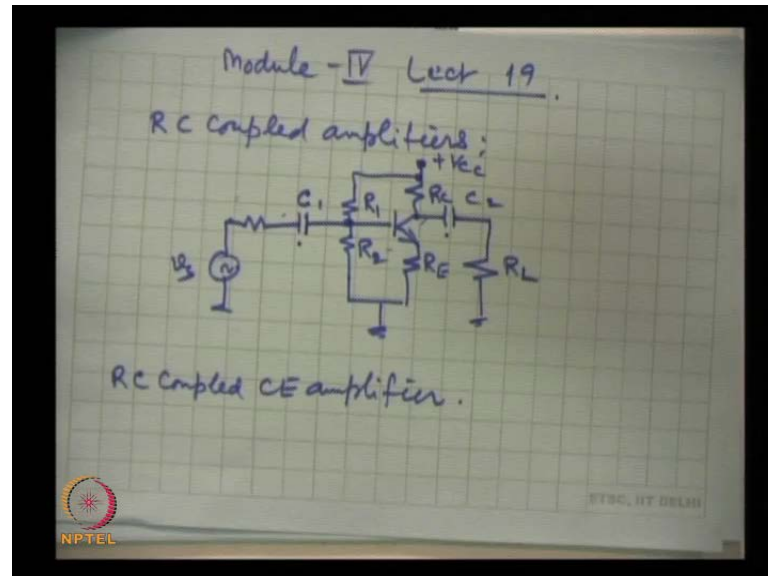 Module - IV Lect 19.
RC Coupled amplifiers:
+Vcc
C1 R1 RC C2
vs R2 RE RL
RC Coupled CE amplifier.
ETSC, IIT DELHI
NPTEL